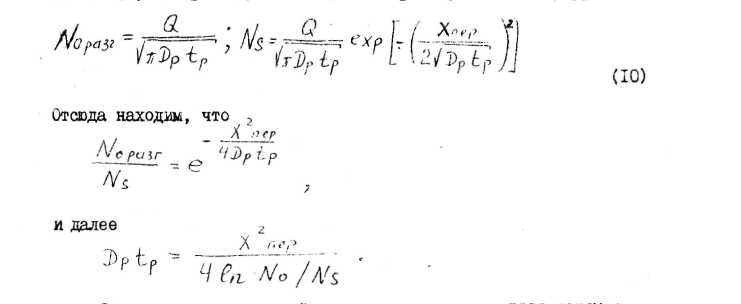 N₀ разг = Q / √(π Dₚ tₚ) ; Nₛ = Q / √(π Dₚ tₚ) exp [- (Xпер / 2√(Dₚ tₚ))²]
(IO)
Отсюда находим, что
N₀ разг / Nₛ = e^(- X²пер / 4Dₚ tₚ) ,
и далее
Dₚ tₚ = X²пер / 4 ln N₀ / Nₛ .